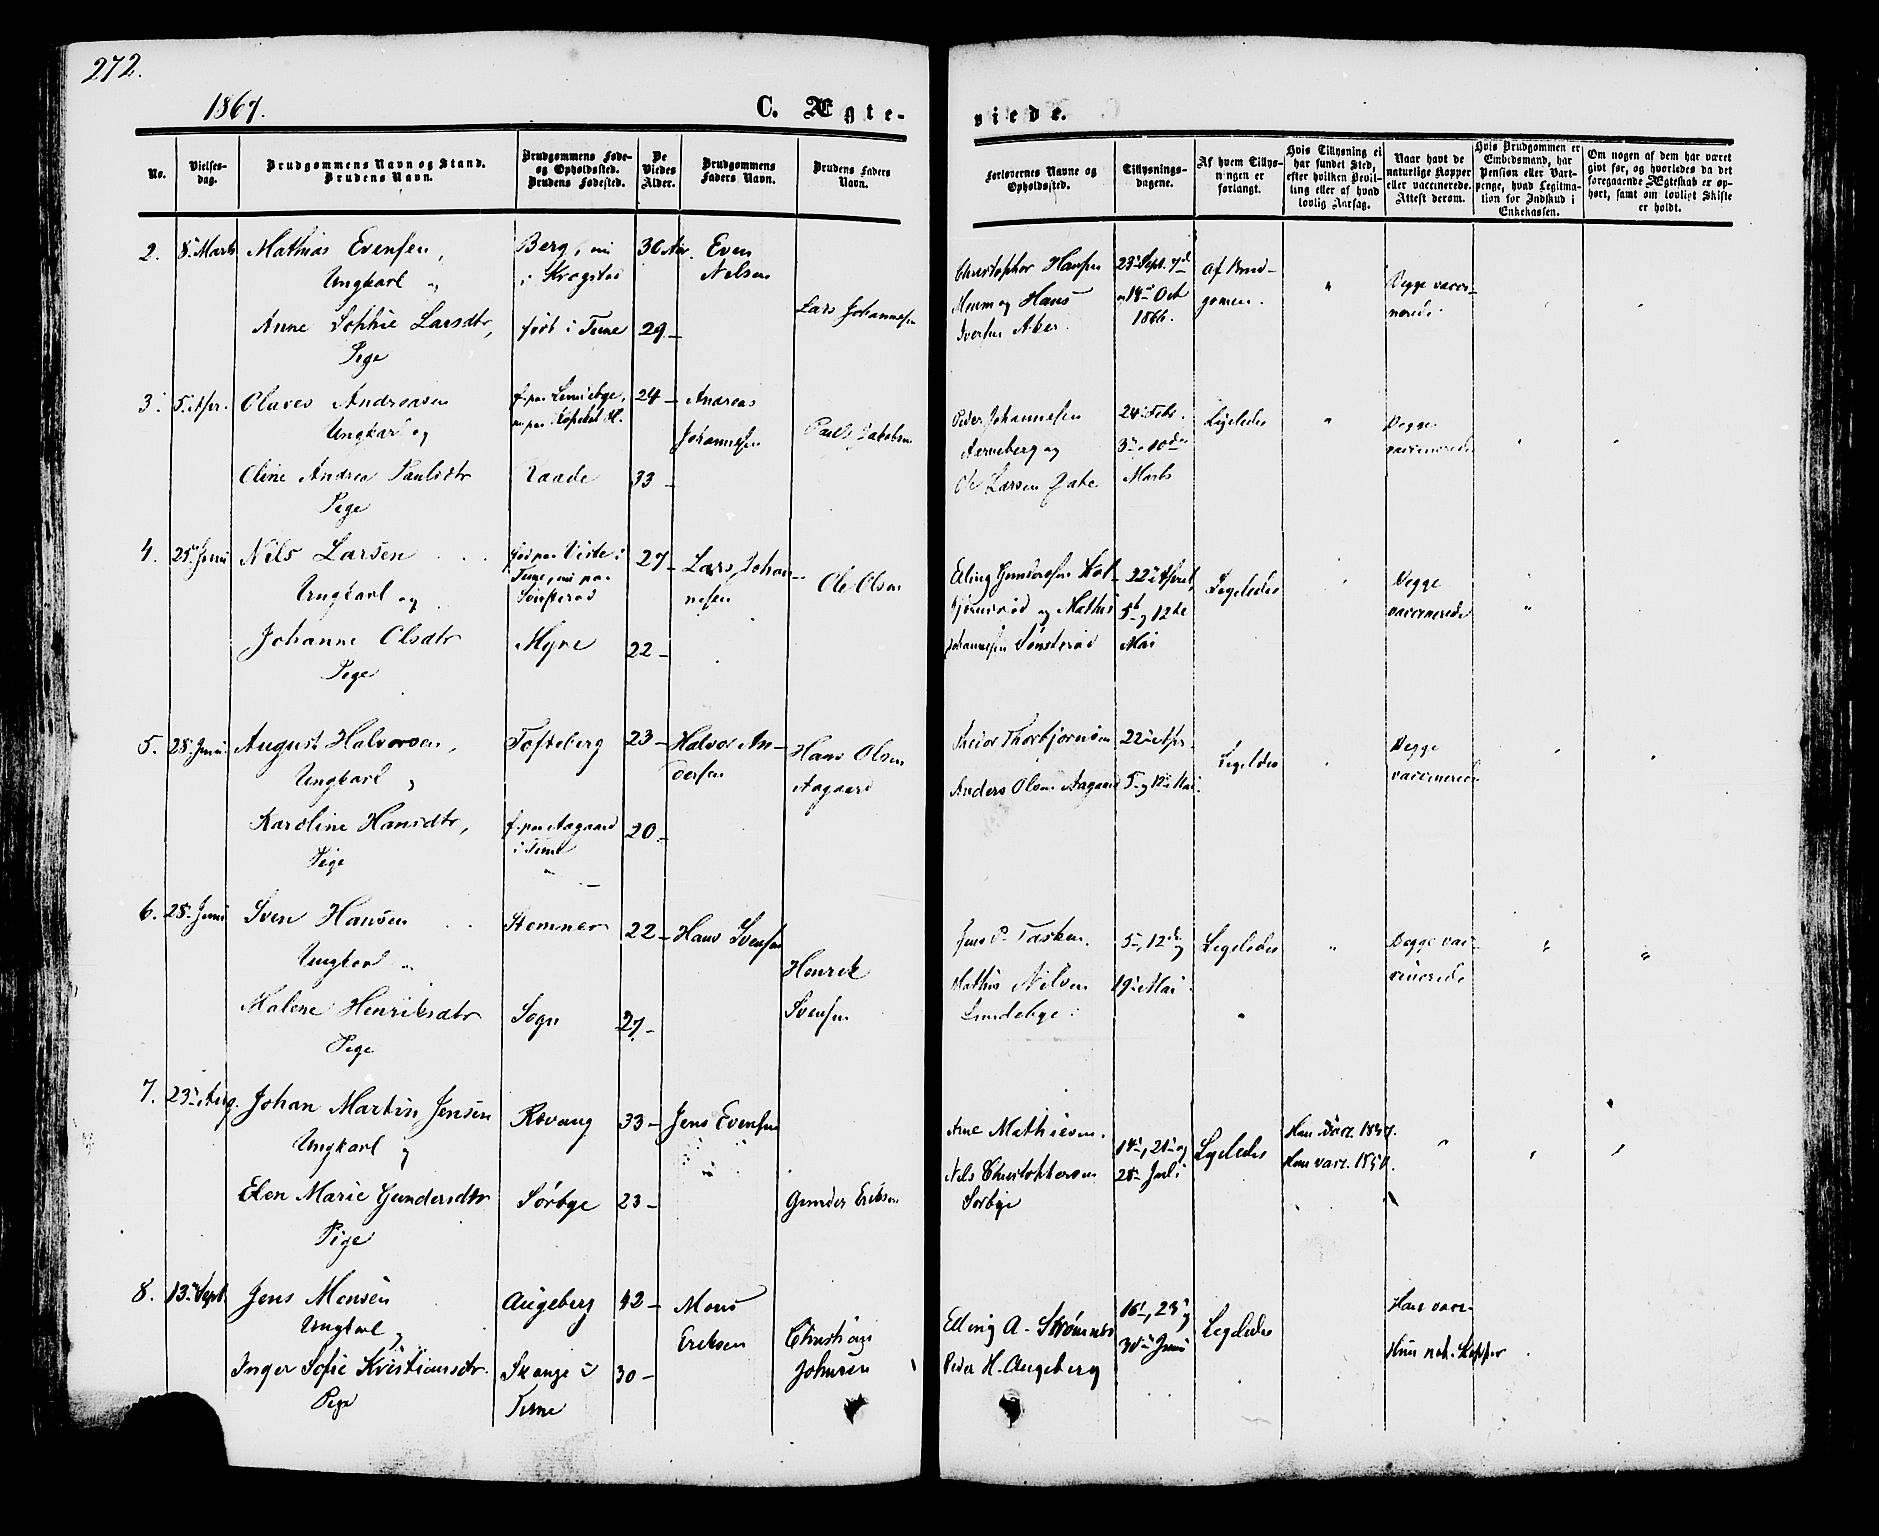 272.
1867.
C. Ægte-
viede.
No.
Vielses-
dag.
Brudgommens Navn og Stand.
Brudens Navn.
Brudgommens Føde-
og Opholdssted.
Brudens Fødested.
De
Viedes
Alder.
Brudgommens
Faders Navn.
Brudens Faders
Navn.
Forlovernes Navne og
Opholdssted.
Tillysnings-
dagene.
Af hvem Tillys-
ningen er
forlangt.
Hvis Tillysning ei
har fundet Sted,
efter hvilken Bevil-
ling eller af hvad
lovlig Aarsag.
Naar havt de
naturlige Kopper
eller vaccinerede.
Attest derom.
Hvis Brudgommen er
Embedsmand, har
Pension eller Vart-
penge, hvad Legitima-
tion for Indskud i
Enkekassen.
Om nogen af dem har været
gift før, og hvorledes da det
foregaaende Ægteskab er op-
hørt, samt om lovligt Skifte
er holdt.
2. 8. Marts Mathias Evensen, Berg, nu 30 Aar. Even
Ungkarl i Krogstad Nilsen
Lars Johannesen
Anne Sophie Larsdtr, født i Tune 29
Pige
Christopher Hansen 23 Sept. 7de Af Brud-
og Hans og 14de Oct gomen. Begge vacci-
Iversen Aker. 1866. nerede.
3. 5. Apr. Olaves Andreasen 24 Andreas
Ungkarl og Johannesen Pauls Jakobsen
Oline Andrea Paulsdtr Raade 33
Pige
Peder Johannesen 24 Febr. Ligeledes Begge
og 3 10de vaccinerede
Ole Larsen Marts
4. 25. Juni Nils Larsen fød paa Viste i 27 Lars Johan-
Ungkarl og Tune, nu paa nesen Ole Olsen
Johanne Olsdtr Myre 22
Pige
Erling Gundersen 22 April Ligeledes Begge
og Mathis 5te og 12te vaccinerede
Johannesen Sønsterød Mai
5. 28. Juni August Halvorsen, Tofteberg 23 Halvor An- Hans Olsen
Ungkarl dersen Aagaard
Karoline Hansdtr, f. paa Aagaard 20
Pige i Tune
Peder Thorbjørnsen 22 Apr. Ligeledes Begge
Anders Olsen Aagaard 5 og 12 Mai. vaccinerede
6. 28. Juni Sven Hansen Stomner 22 Hans Svensen
Ungkarl Henrik
Malene Henriksdtr Sogn 27 Svensen
Pige
Jens P. Tasken. 5, 12te og Ligeledes Begge vac-
Mathis Nilsen 19 Mai cinerede
Lundebye
7. 23 Aug. Johan Martin Jensen Rævaug 33 Jens Evensen
Ungkarl og
Elen Marie Gundersdtr Sørbye 23 Gunder Eriksen
Pige
Arne Mathiesen. 14, 21 og Ligeledes Han vacc.
Nils Christophersen 28 Juli Hun vacc. 1850.
Sørbye
8. 13 Sept. Jens Monsen Augeberg 42 Mons
Ungkarl og Eriksen Christian
Inger Sofie Kristiansdtr. Skange i 30 Johnsen
Pige Tune
Elling A. Strømnes 16, 23 og Ligeledes Han vacc.
Peder H. Augeberg 30 Juni Hun nat. Kopper.